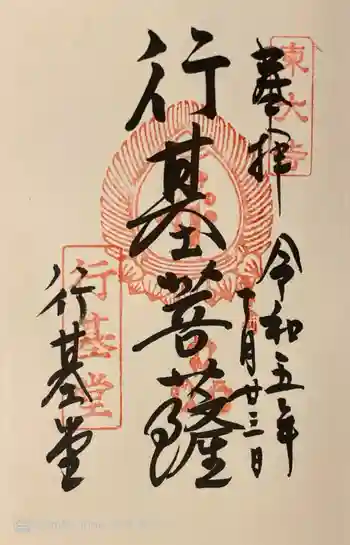 東大寺
奉拝
令和五年
月廿三日
行基菩薩
行基堂
行基堂